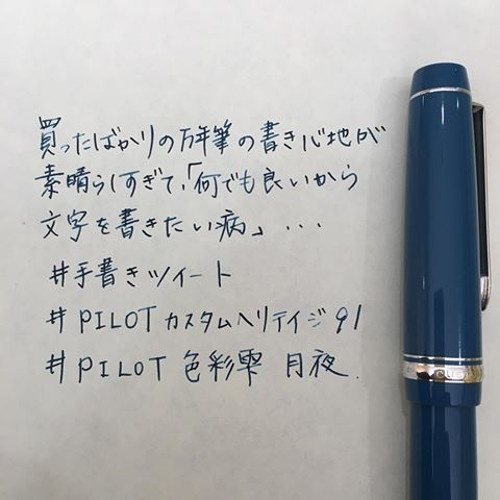 買ったばかりの万年筆の書き心地が
素晴らしすぎて、「何でも良いから
文字を書きたい病」・・・
#手書きツイート
#PILOTカスタムヘリテイジ91
#PILOT 色彩雫 月夜